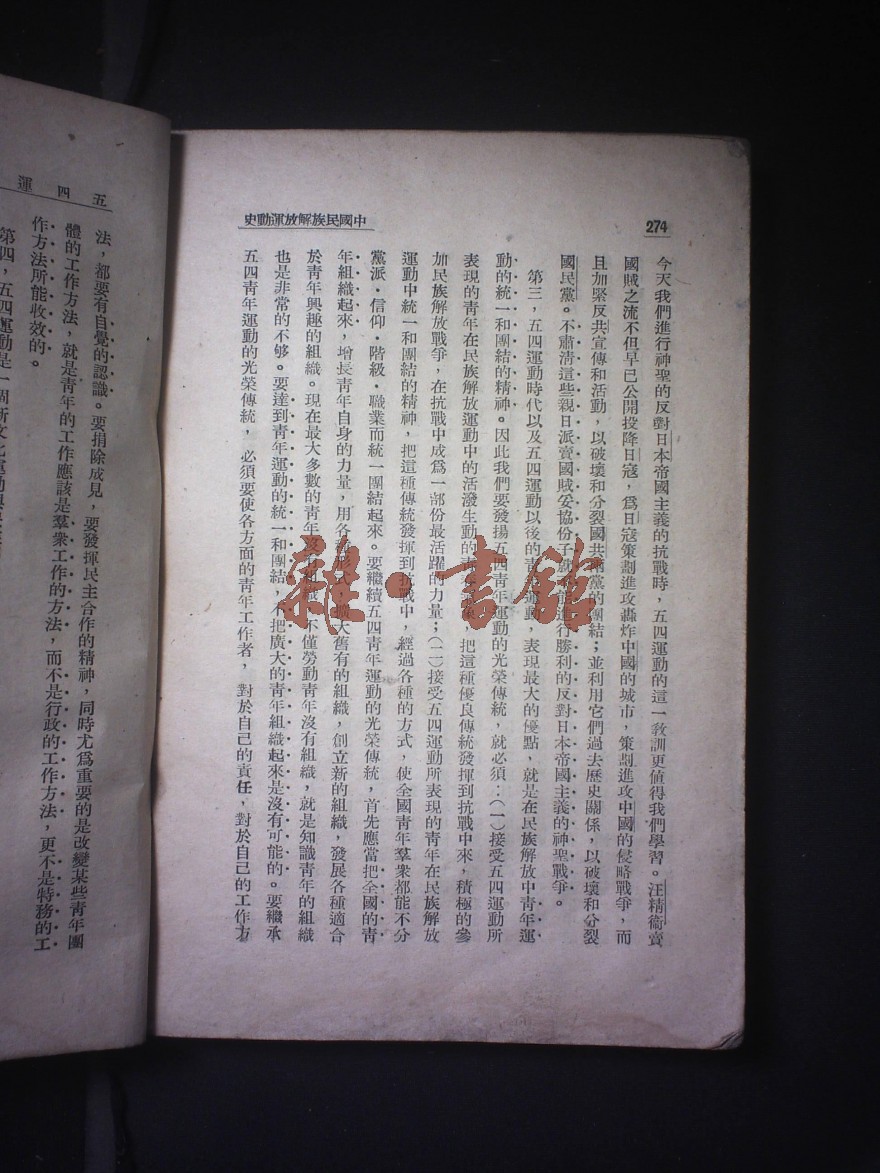 274
中國民族解放運動史
今天我們進行神聖的反對日本帝國主義的抗戰時，五四運動的這一教訓更值得我們學習。汪精衞賣
國賊之流不但早已公開投降日寇，爲日寇策劃進攻轟炸中國的城市，策劃進攻中國的侵略戰爭，而
且加緊反共宣傳和活動，以破壞和分裂國共兩黨的團結；並利用它們過去歷史關係，以破壞和分裂
國民黨。不肅清這些親日派賣國賊妥協份子就不能進行勝利的反對日本帝國主義的神聖戰爭。
第三，五四運動時代以及五四運動以後的青年運動，表現最大的優點，就是在民族解放中青年運
動的統一和團結的精神。因此我們要發揚五四青年運動的光榮傳統，就必須：（一）接受五四運動所
表現的青年在民族解放運動中的活潑生動的青年，把這種優良傳統發揮到抗戰中來，積極的參
加民族解放戰爭，在抗戰中成爲一部份最活躍的力量；（二）接受五四運動所表現的青年在民族解放
運動中統一和團結的精神，把這種傳統發揮到抗戰中，經過各種的方式，使全國青年羣衆都能不分
黨派·信仰·階級·職業而統一團結起來。要繼續五四青年運動的光榮傳統，首先應當把全國的青
年組織起來，增長青年自身的力量，用各種形式，擴大舊有的組織，創立新的組織，發展各種適合
於青年興趣的組織。現在最大多數的青年沒有組織，不僅勞動青年沒有組織，就是知識青年的組織
也是非常的不够。要達到青年運動的統一和團結，不把廣大的青年組織起來是沒有可能的。要繼承
五四青年運動的光榮傳統，必須要使各方面的青年工作者，對於自己的責任，對於自己的工作方
五四運
法，都要有自覺的認識。要捐除成見，要發揮民主合作的精神，同時尤爲重要的是改變某些青年團
體的工作方法，就是青年的工作應該是羣衆工作的方法，而不是行政的工作方法，更不是特務的工
作方法所能收效的。
第四，五四運動是一個新文化運動
雜·書館